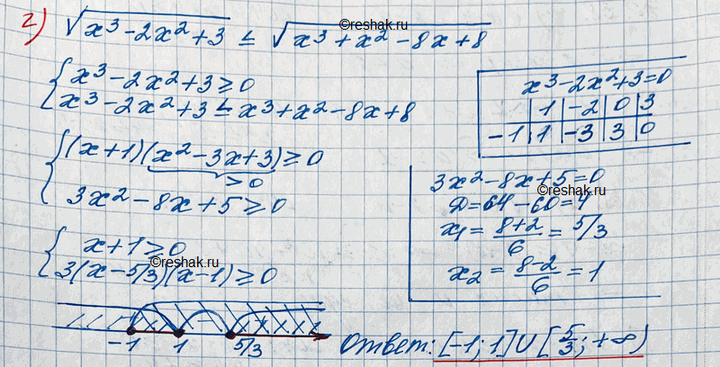 2) √(x³-2x²+3) ≤ √(x³+x²-8x+8)
©reshak.ru
{ x³-2x²+3≥0
x³-2x²+3≤x³+x²-8x+8
x³-2x²+3=0
| 1 | -2 | 0 | 3
-1 | 1 | -3 | 3 | 0
{ (x+1)(x²-3x+3)≥0
>0
3x²-8x+5≥0
3x²-8x+5=0
©reshak.ru
D=64-60=4
x₁=(8+2)/6=5/3
x₂=(8-2)/6=1
{ x+1≥0
©reshak.ru
3(x-5/3)(x-1)≥0
-1 1 5/3
Ответ: [-1; 1]∪[5/3; +∞)